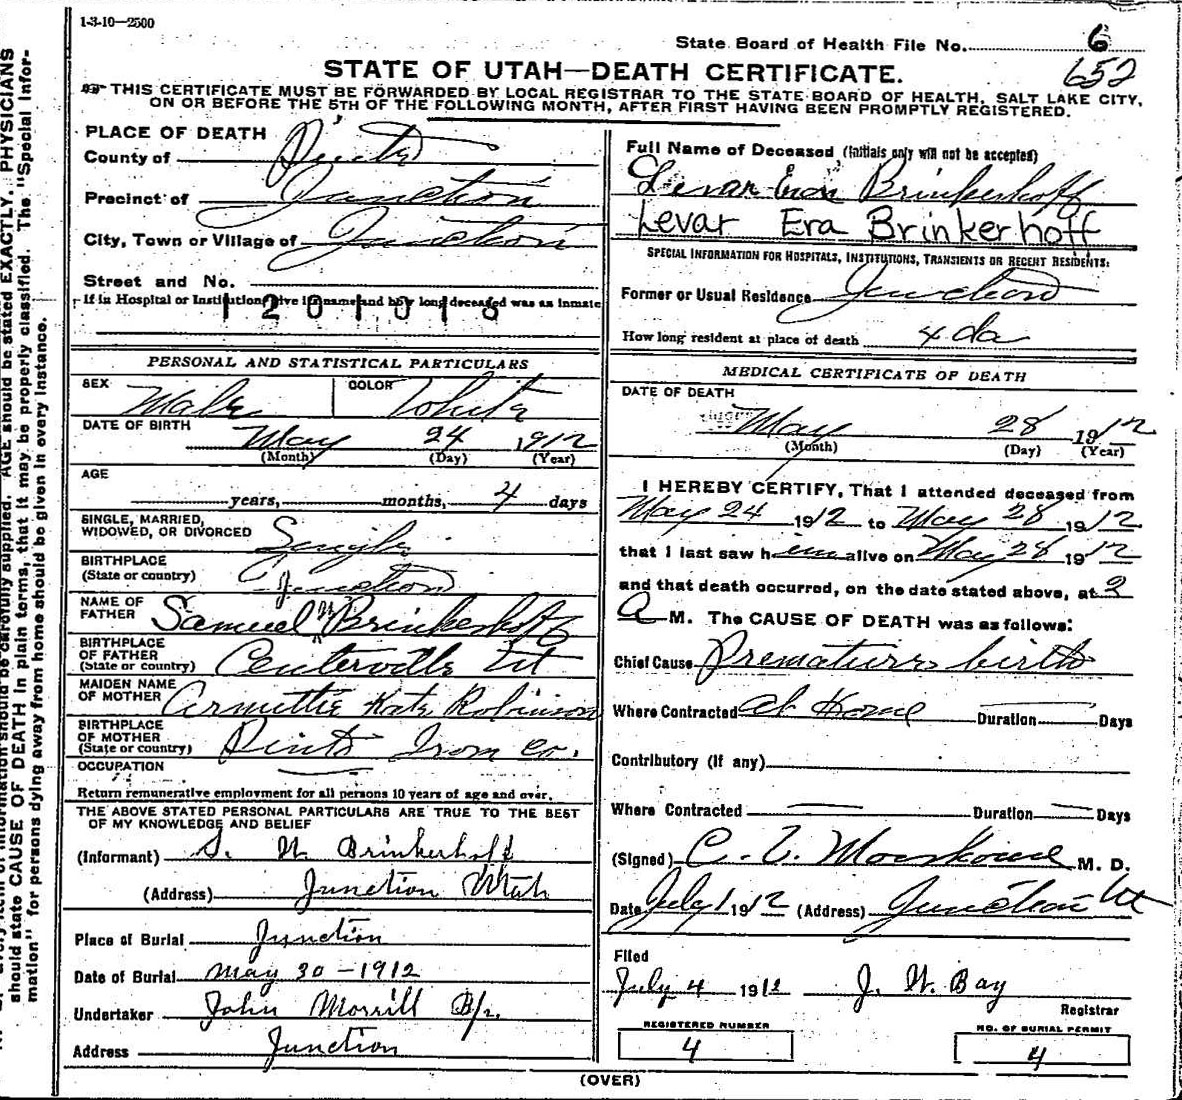 1-3-10—2500
State Board of Health File No. 6
652
STATE OF UTAH—DEATH CERTIFICATE.
THIS CERTIFICATE MUST BE FORWARDED BY LOCAL REGISTRAR TO THE STATE BOARD OF HEALTH, SALT LAKE CITY,
ON OR BEFORE THE 5TH OF THE FOLLOWING MONTH, AFTER FIRST HAVING BEEN PROMPTLY REGISTERED.
PLACE OF DEATH
County of
Precinct of Junction
City, Town or Village of Junction
Street and No.
If in Hospital or Institution, give its name and how long deceased was as inmate
1201018
PERSONAL AND STATISTICAL PARTICULARS
SEX Male COLOR White
DATE OF BIRTH May 24 1912
(Month) (Day) (Year)
AGE
years, months, 4 days
SINGLE, MARRIED,
WIDOWED, OR DIVORCED Single
BIRTHPLACE
(State or country) Junction
NAME OF
FATHER Samuel W Brinkerhoff
BIRTHPLACE
OF FATHER
(State or country) Centerville Ut
MAIDEN NAME
OF MOTHER Armettie Kate Robinson
BIRTHPLACE
OF MOTHER
(State or country) Pinto Iron Co.
OCCUPATION
Return remunerative employment for all persons 10 years of age and over.
THE ABOVE STATED PERSONAL PARTICULARS ARE TRUE TO THE BEST
OF MY KNOWLEDGE AND BELIEF
(Informant) S. W. Brinkerhoff
(Address) Junction Utah
Place of Burial Junction
Date of Burial May 30 - 1912
Undertaker John Morrill
Address Junction
Full Name of Deceased (Initials only will not be accepted)
Levar Era Brinkerhoff
Levar Era Brinkerhoff
SPECIAL INFORMATION FOR HOSPITALS, INSTITUTIONS, TRANSIENTS OR RECENT RESIDENTS:
Former or Usual Residence Junction
How long resident at place of death 4 da
MEDICAL CERTIFICATE OF DEATH
DATE OF DEATH
May 28 1912
(Month) (Day) (Year)
I HEREBY CERTIFY, That I attended deceased from
May 24 1912 to May 28 1912
that I last saw him alive on May 28 1912
and that death occurred, on the date stated above, at 2
A M. The CAUSE OF DEATH was as follows:
Chief Cause Premature birth
Where Contracted At Home Duration Days
Contributory (if any)
Where Contracted Duration Days
(Signed) C. M. D.
Date July 1 1912 (Address) Junction Ut
Filed
July 4 1912 J. W. Bay
Registrar
REGISTERED NUMBER
4
NO. OF BURIAL PERMIT
4
(OVER)
should be carefully supplied. AGE should be stated EXACTLY. PHYSICIANS
should state CAUSE OF DEATH in plain terms, that it may be properly classified. The "Special Infor-
mation" for persons dying away from home should be given in every instance.